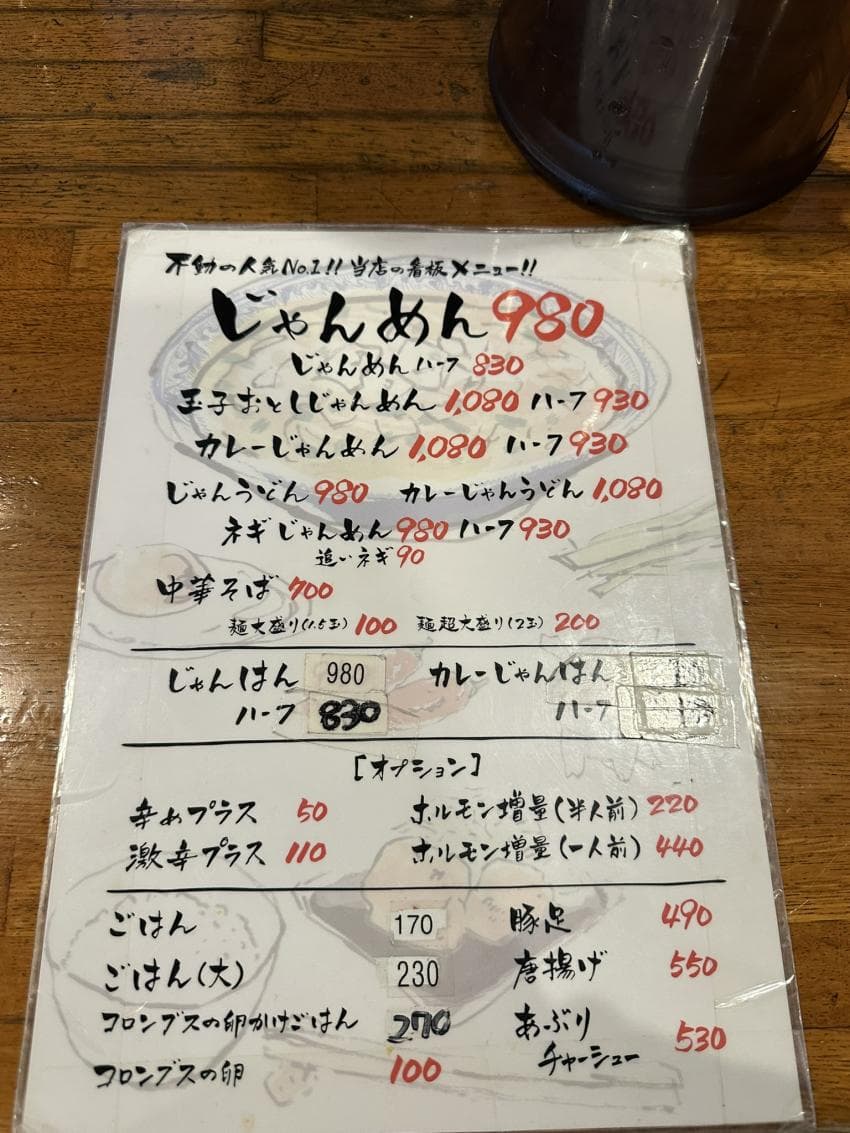 不動の人気No.1!! 当店の看板メニュー!!
じゃんめん 980
じゃんめんハーフ 830
玉子おとしじゃんめん 1,080 ハーフ 930
カレーじゃんめん 1,080 ハーフ 930
じゃんうどん 980 カレーじゃんうどん 1,080
ネギじゃんめん 980 ハーフ 930
追いネギ 90
中華そば 700
麺大盛り(1.5玉) 100 麺超大盛り(2玉) 200
じゃんはん 980 カレーじゃんはん
ハーフ 830 ハーフ
[オプション]
辛めプラス 50 ホルモン増量(半人前) 220
激辛プラス 110 ホルモン増量(一人前) 440
ごはん 170 豚足 490
ごはん(大) 230 唐揚げ 550
コロンブスの卵かけごはん 270 あぶり
チャーシュー 530
コロンブスの卵 100